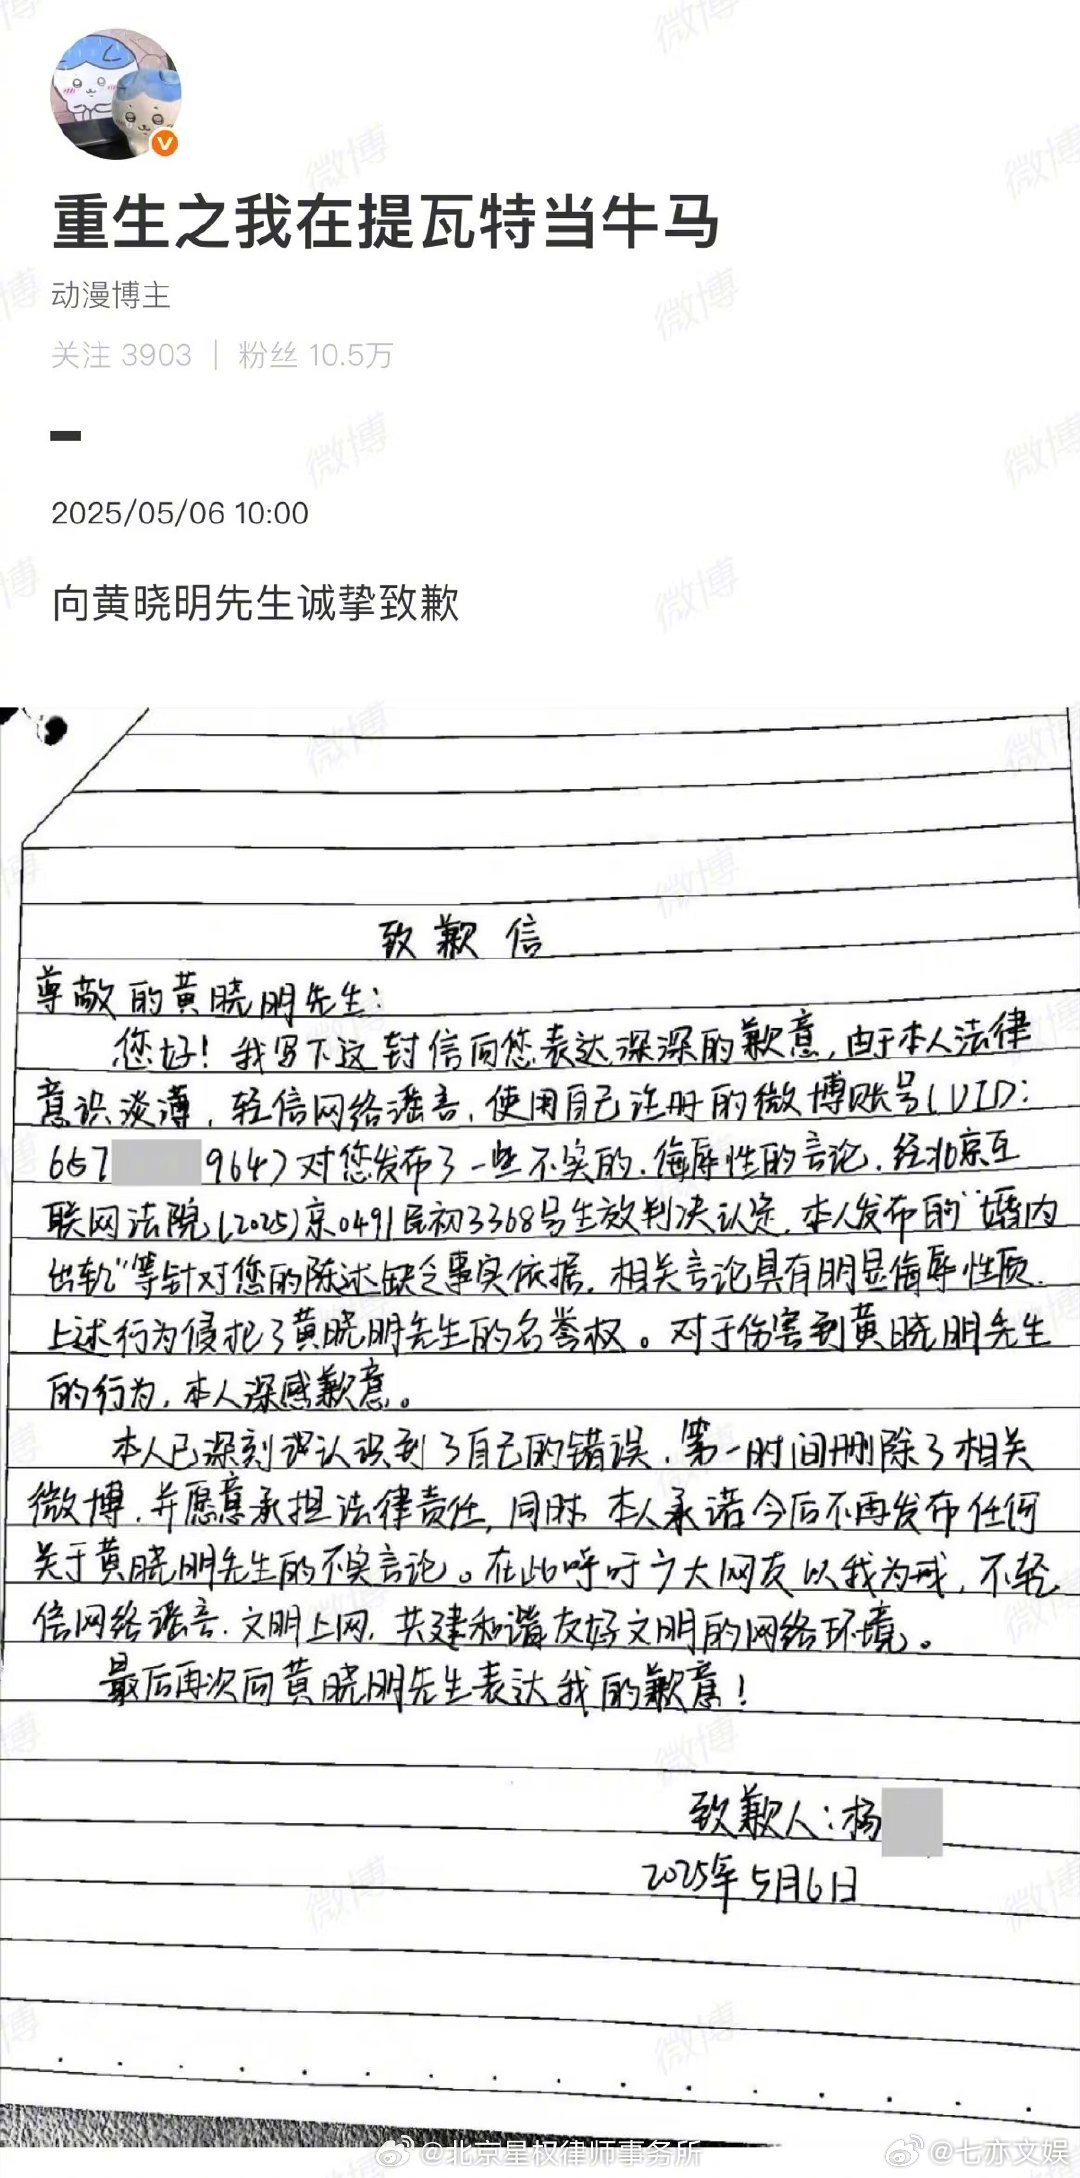 重生之我在提瓦特当牛马
动漫博主
关注 3903 | 粉丝 10.5万
2025/05/06 10:00
向黄晓明先生诚挚致歉
致歉信
尊敬的黄晓明先生:
您好!我写下这封信向您表达深深的歉意,由于本人法律
意识淡薄,轻信网络谣言,使用自己注册的微博账号(UID:
657 9647对您发布了一些不实的、侮辱性的言论,经北京互
联网法院(2025)京0491民初3368号生效判决认定,本人发布的“婚内
出轨”等针对您的陈述缺乏事实依据,相关言论具有明显侮辱性质,
上述行为侵犯了黄晓明先生的名誉权。对于伤害到黄晓明先生
的行为,本人深感歉意。
本人已深刻认识到了自己的错误,第一时间删除了相关
微博,并愿意承担法律责任,同时本人承诺今后不再发布任何
关于黄晓明先生的不实言论。在此呼吁广大网友以我为戒,不轻
信网络谣言,文明上网,共建和谐友好文明的网络环境。
最后再次向黄晓明先生表达我的歉意!
致歉人:杨
2025年5月6日
@北京星权律师事务所
@七亦文娱
微博